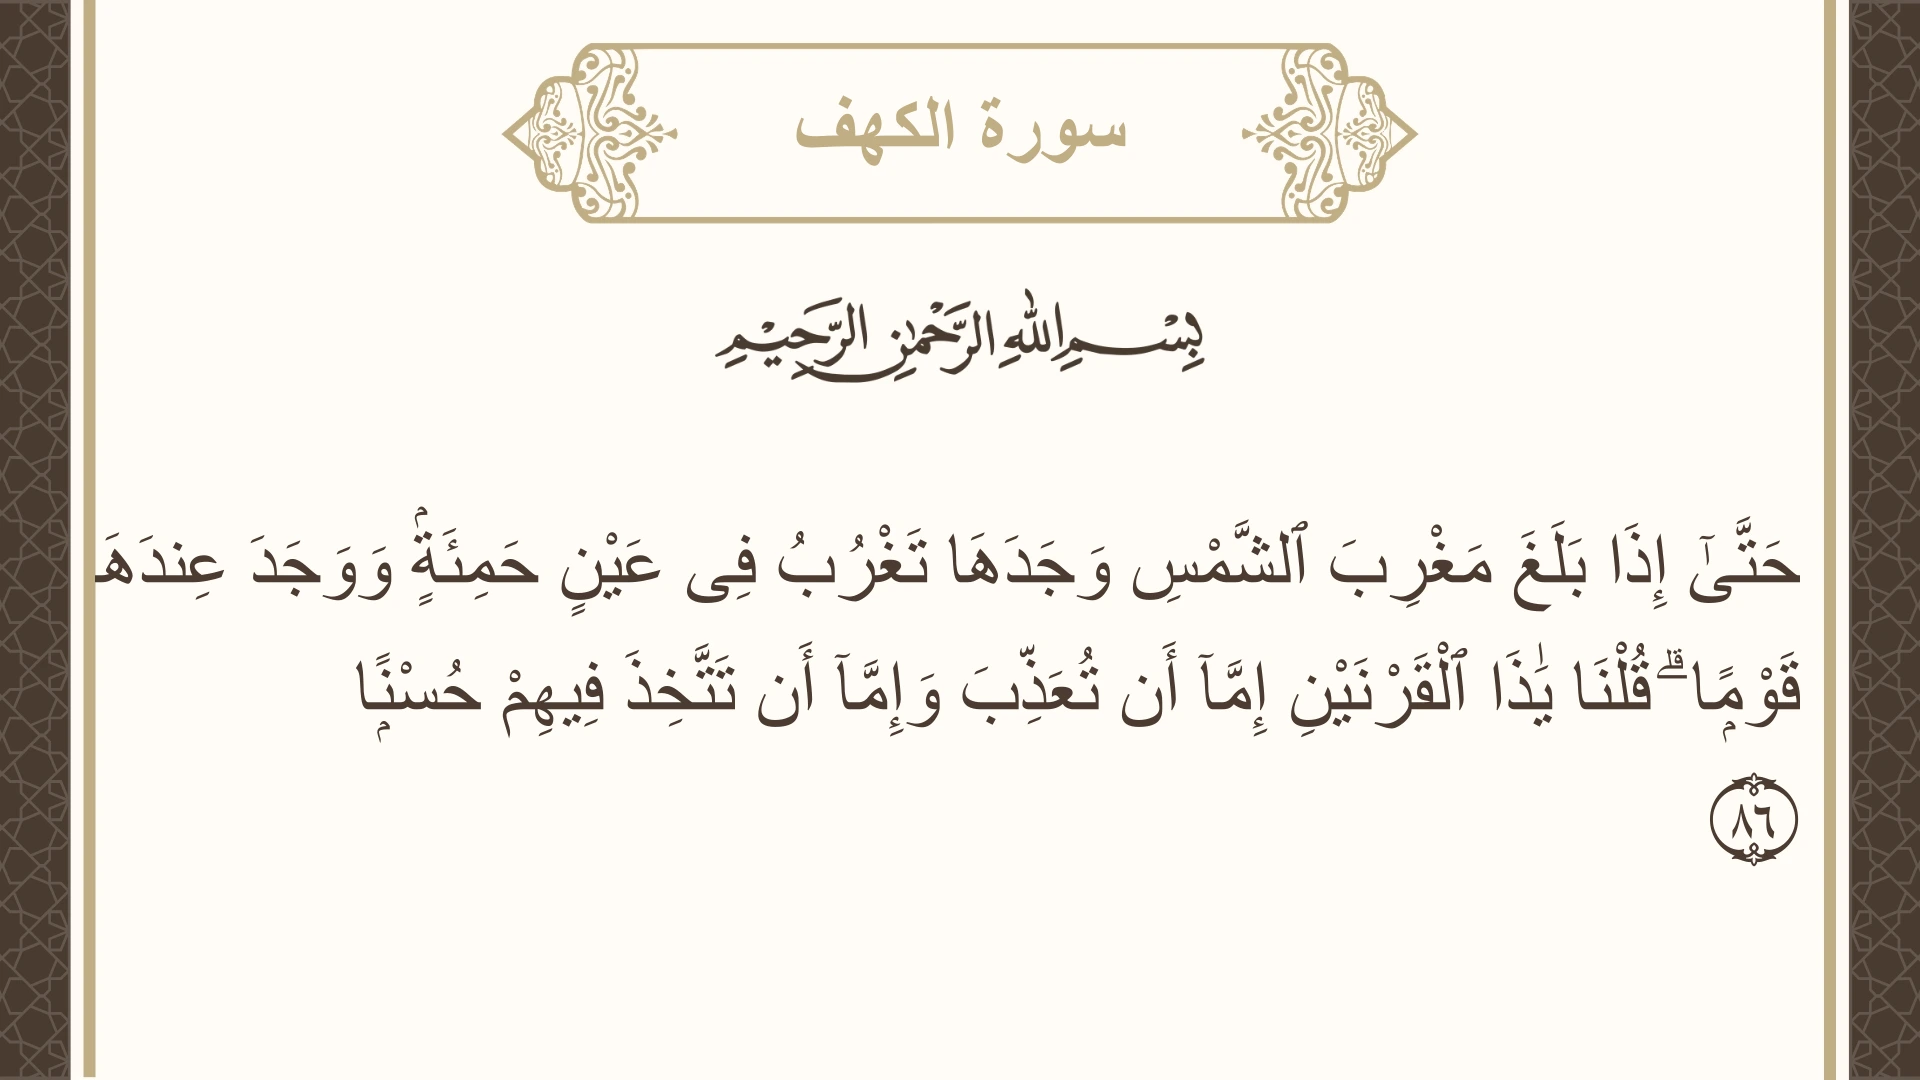 سورة الكهف
بِسْمِ اللهِ الرَّحْمٰنِ الرَّحِيْمِ
حَتَّىٰٓ إِذَا بَلَغَ مَغْرِبَ ٱلشَّمْسِ وَجَدَهَا تَغْرُبُ فِى عَيْنٍ حَمِئَةٍۢ وَوَجَدَ عِندَهَا
قَوْمًۭا ۗ قُلْنَا يَٰذَا ٱلْقَرْنَيْنِ إِمَّآ أَن تُعَذِّبَ وَإِمَّآ أَن تَتَّخِذَ فِيهِمْ حُسْنًۭا
٨٦